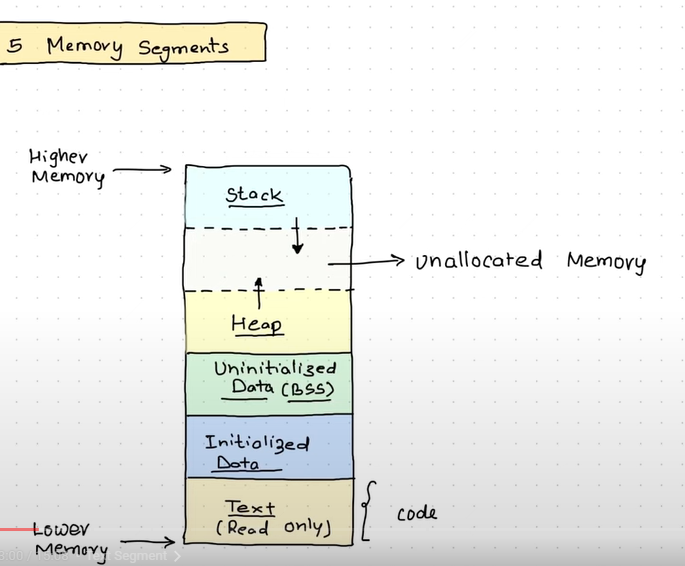 5 Memory Segments
Higher
Memory
Stack
Unallocated Memory
Heap
Uninitialized
Data (BSS)
Initialized
Data
Text
(Read only)
code
Lower
Memory
Segment